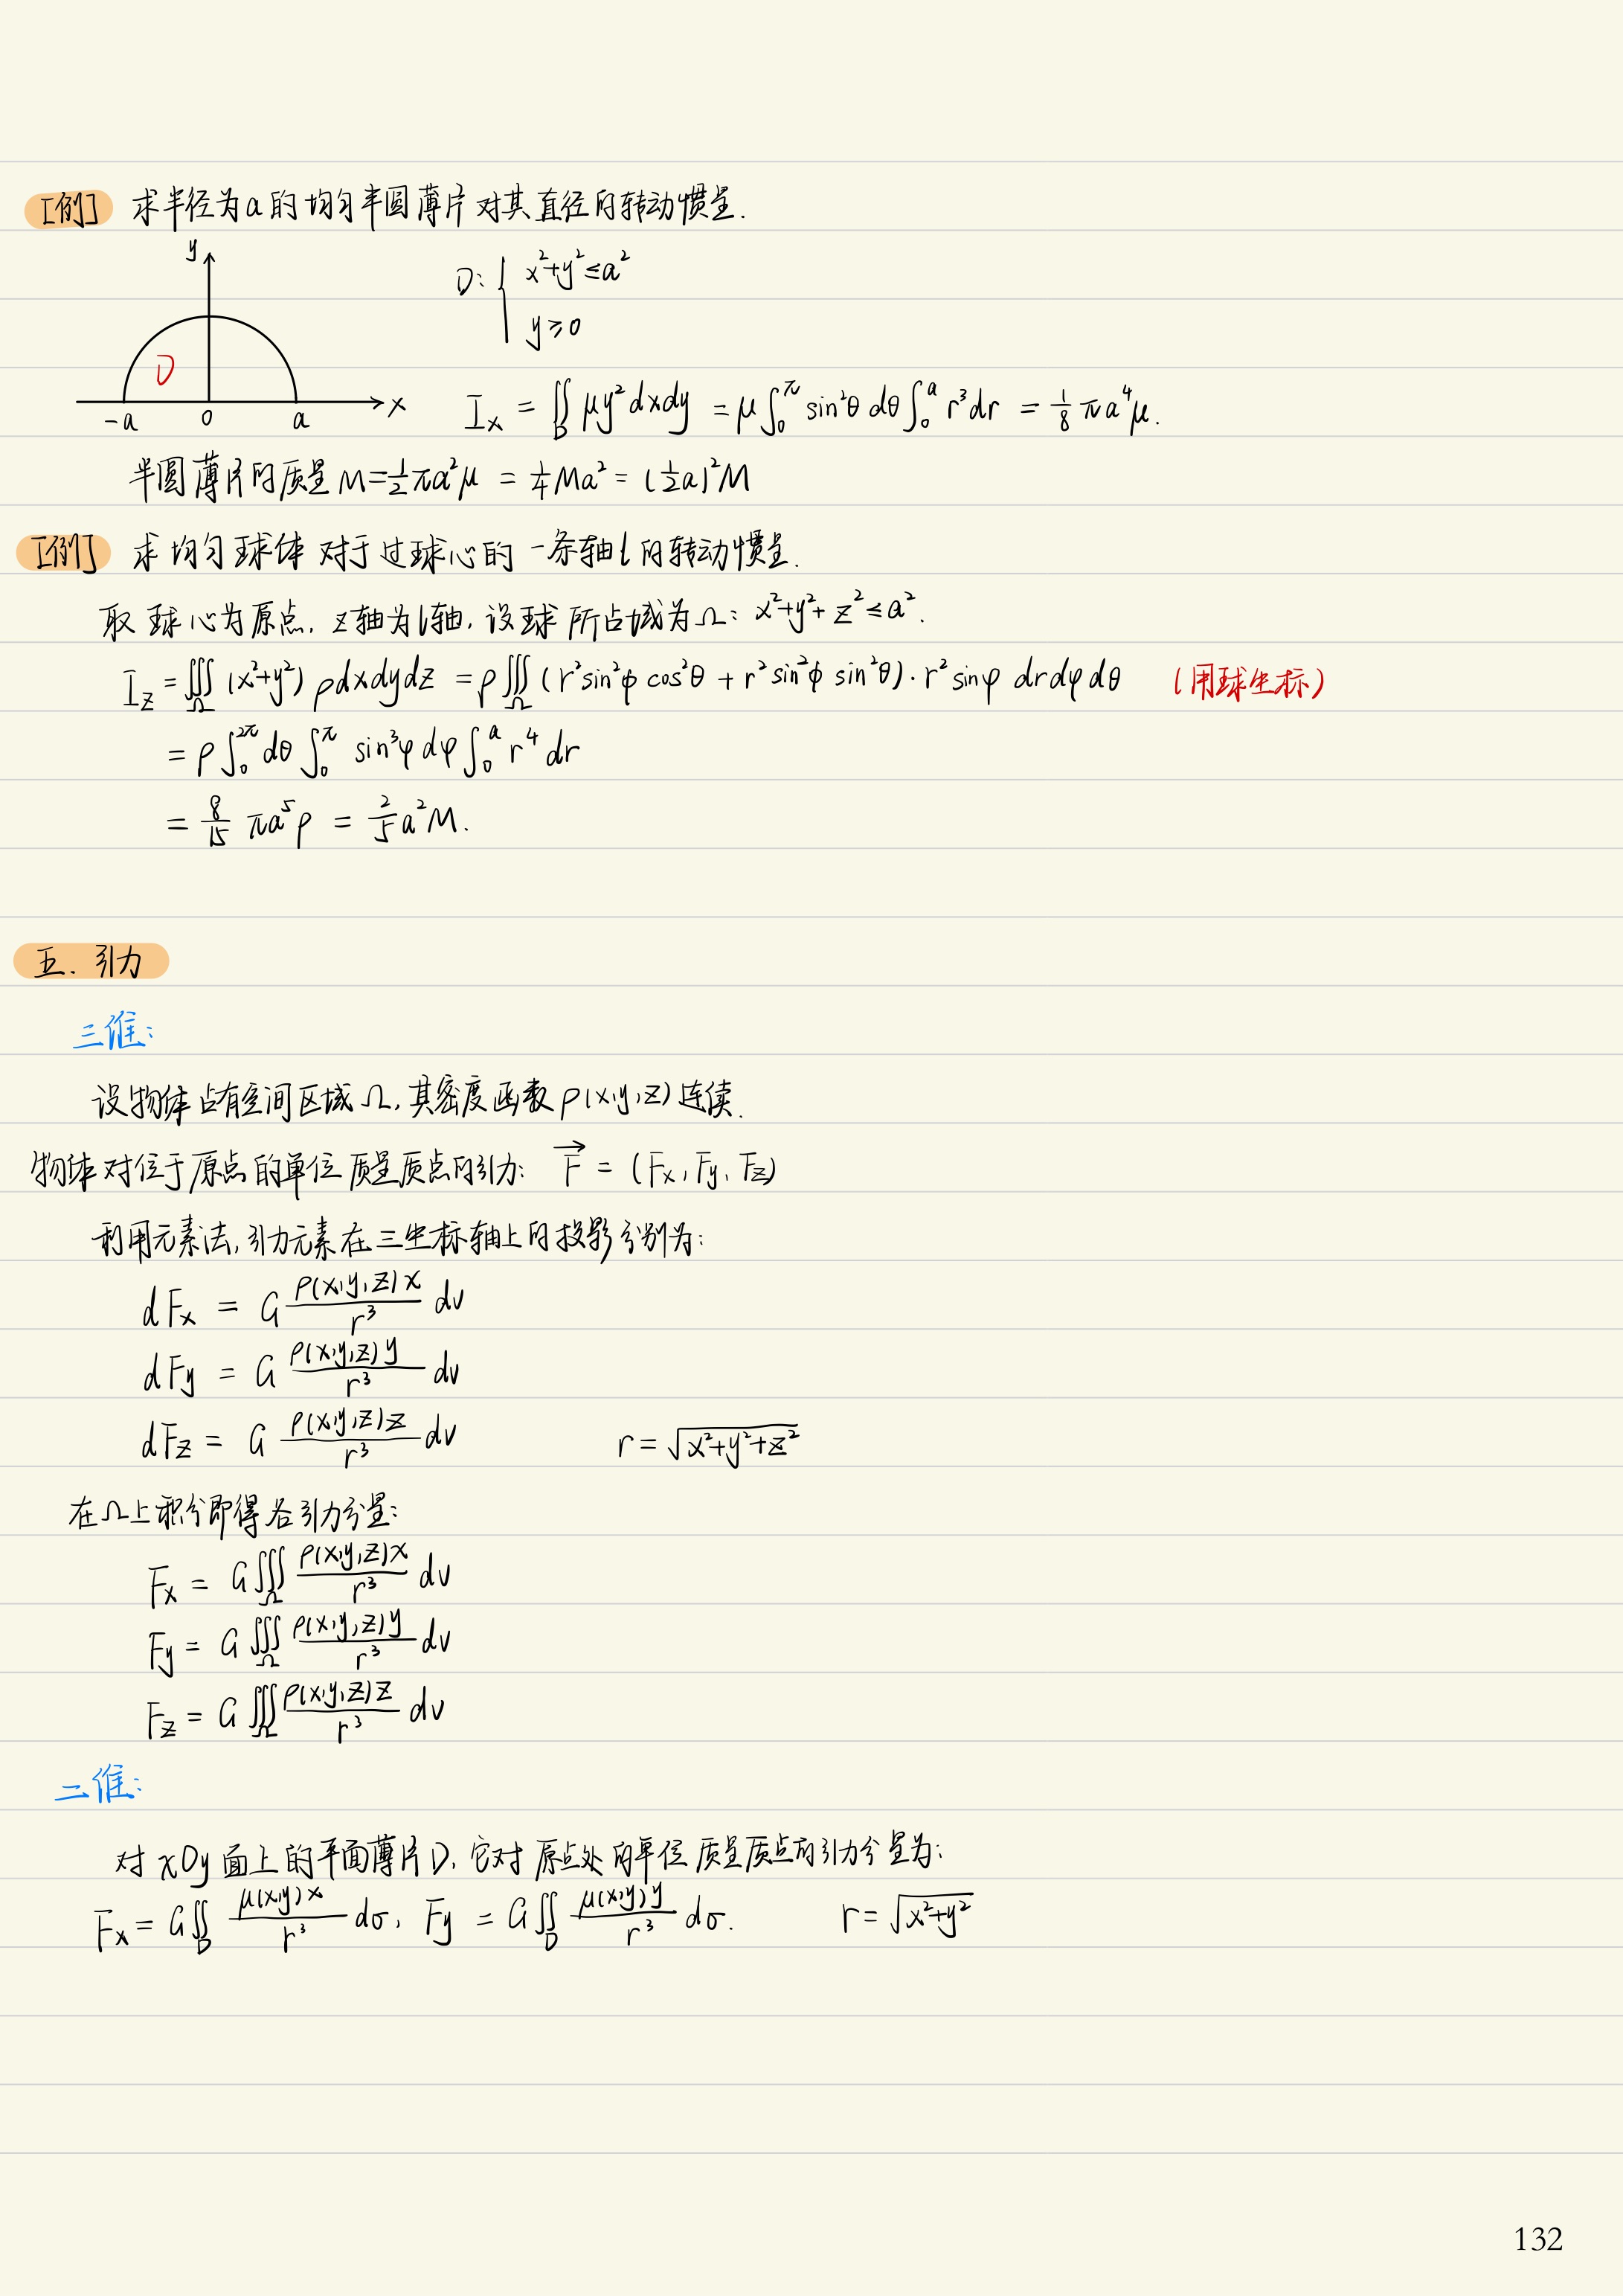 [例] 求半径为a的均匀半圆薄片对其直径的转动惯量.
y
D: { x²+y²≤a²
y≥0
D
-a 0 a x
I_x = ∬_D μy²dxdy = μ∫₀^π sin²θ dθ∫₀^a r³dr = 1/8 πa⁴μ.
半圆薄片的质量 M=1/2πa²μ = 1/4 Ma² = (1/2a)²M
[例] 求均匀球体对于过球心的一条轴l的转动惯量.
取球心为原点, z轴为l轴, 设球所占域为Ω: x²+y²+z²≤a².
I_z = ∭_Ω (x²+y²) ρdxdydz = ρ∭_Ω (r²sin²φ cos²θ + r²sin²φ sin²θ)·r²sinφ drdφdθ (用球坐标)
= ρ∫₀^2π dθ∫₀^π sin³φ dφ∫₀^a r⁴ dr
= 8/15 πa⁵ρ = 2/5 a²M.
五. 引力
三维:
设物体占有空间区域Ω, 其密度函数ρ(x,y,z)连续.
物体对位于原点的单位质量质点的引力: F⃗ = (F_x, F_y, F_z)
利用元素法, 引力元素在三坐标轴上的投影分别为:
dF_x = G ρ(x,y,z)x/r³ dv
dF_y = G ρ(x,y,z)y/r³ dv
dF_z = G ρ(x,y,z)z/r³ dv r=√(x²+y²+z²)
在Ω上积分即得各引力分量:
F_x = G∭_Ω ρ(x,y,z)x/r³ dv
F_y = G∭_Ω ρ(x,y,z)y/r³ dv
F_z = G∭_Ω ρ(x,y,z)z/r³ dv
二维:
对xOy面上的平面薄片D, 它对原点处的单位质量质点的引力分量为:
F_x = G∬_D μ(x,y)x/r³ dσ, F_y = G∬_D μ(x,y)y/r³ dσ. r=√(x²+y²)
132